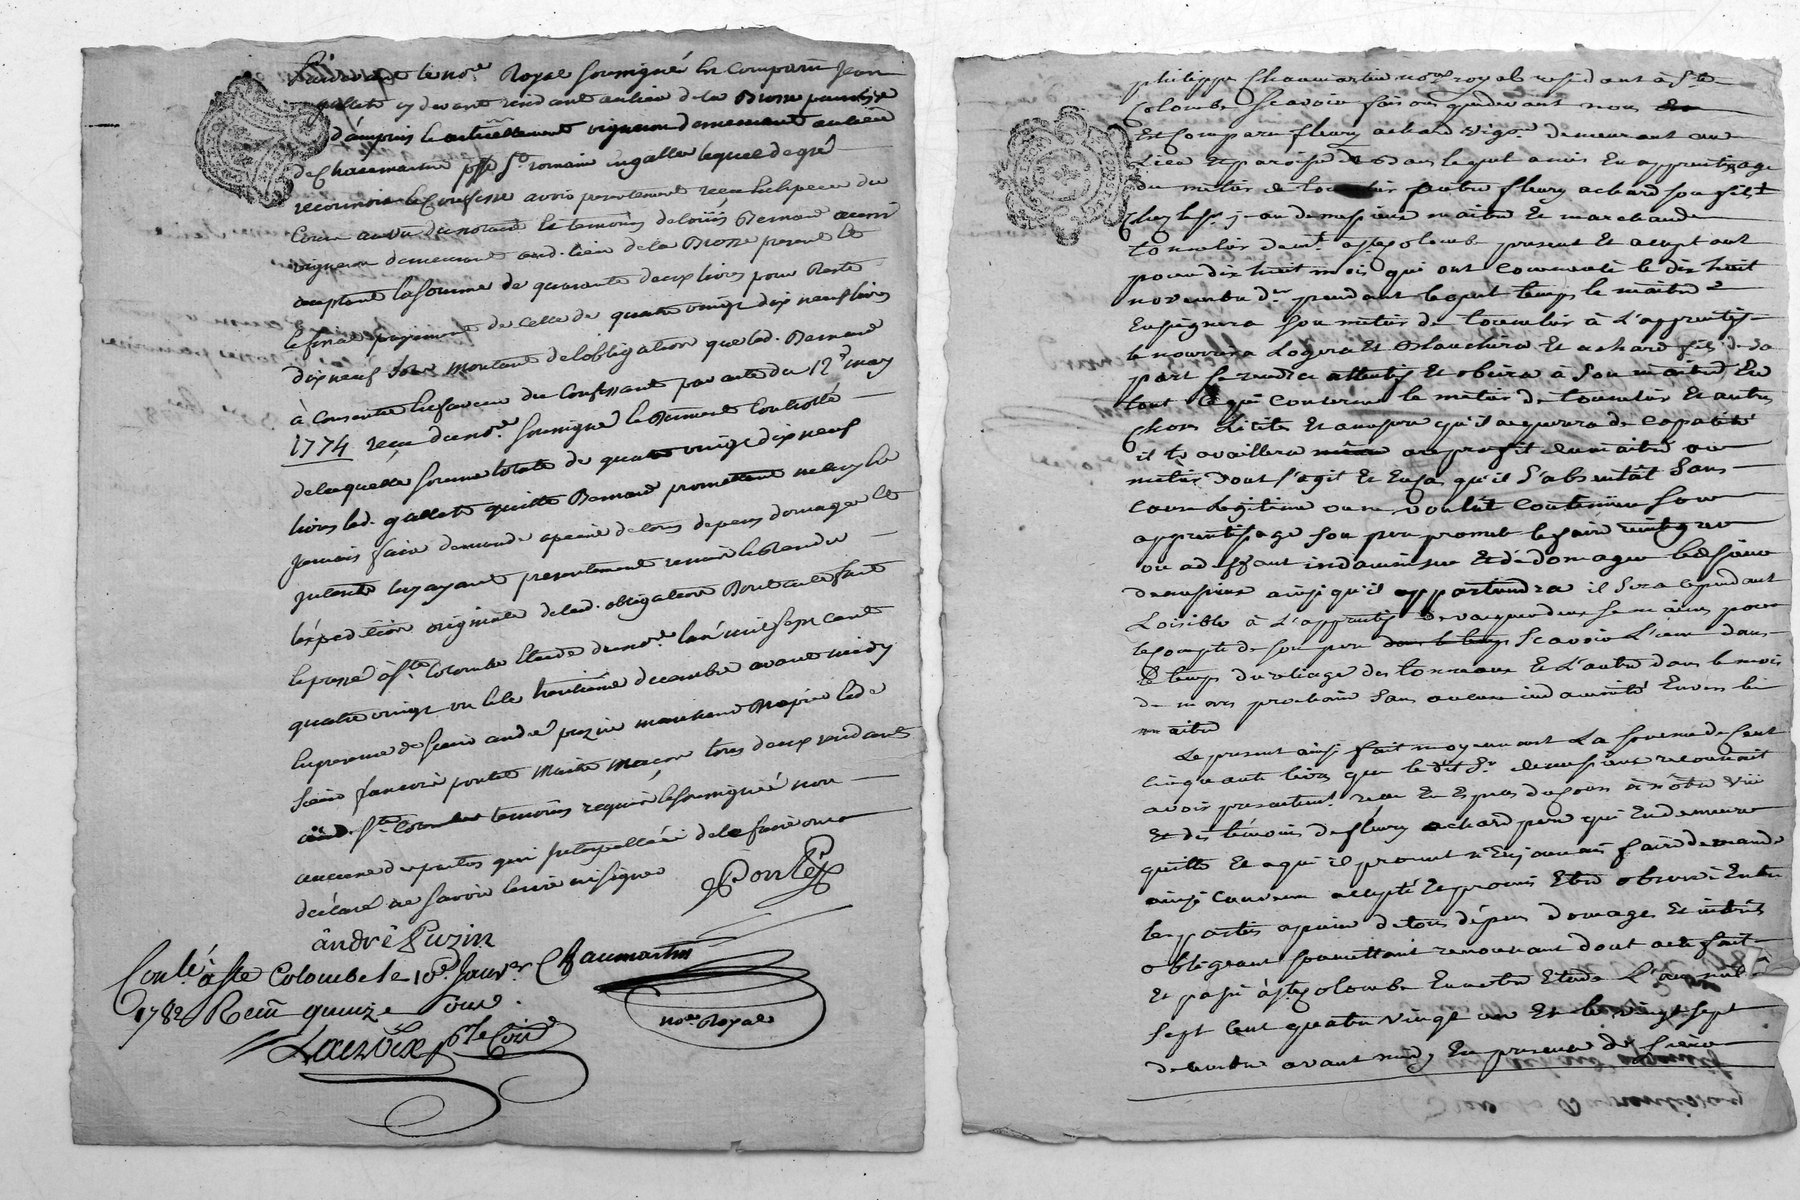 le no.re Royal soussigné est comparu Jean
gallet cy devant résidant au lieu de la Brosse paroisse
d'ampuis et actuellement vigneron demeurant au lieu
de Chânemartin psse St romain en gallet lequel de gré
reconnoit et confesse avoir presentement receu en espece du
cours au vu du notaire et temoins de loüis Bernard aussi
vigneron demeurant aud. lieu de la Brosse present et
acceptant la somme de quarante deux livres pour Reste
et final payement de celle de quatre vingt dix neuf livres
dix neuf sols montant de l'obligation que led. Bernard
à consentie en faveur du Confessant par acte du 12e may
1774 receu du no.re soussigné et düment Controllé
de laquelle somme totale de quatre vingt dix neuf
livres led. gallet quitte Bernard promettant ne luy en
jamais faire demande a peine de tous depens domages et
interets luy ayant presentement remis
l'expedition originale de lad. obligation Dont acte fait
et passé à Ste Colombe Etude du no.re l'an mil sept cent
quatre vingt un et le trentième decembre avant midy
En presence de sieur andré puzin marchand et de
sieur poulet Maitre maçon tous deux residants
aud. Ste Colombe temoins requis et soussignés non
aucune des parties qui interpellées de le faire ont
déclaré ne savoir ecrire ni signer
Poulet
ândrê Puzin
Chaumartin
Conlé à Ste Colombe le 10e Janv.er
1782 Recu quinze sous.
no.re Royal
Lacroix
philippe Chaumartin no.re royal residant à Ste
Colombe scavoir faisons que devant nous
Est Comparu fleury achard vigr. demeurant au
Lieu et paroisse de lequel a mis En apprentissage
du metier de tonnelier autre fleury achard son fils
Chez maitre Et marchand
tonnelier demt. a Ste Colombe present Et aceptant
pour dix huit mois qui ont Commencé le dix huit
novembre der. pendant lequel temps le maitre
Enseignera son metier de tonnelier à L'apprentif
le nourrira Logera Et Blanchira Et achard fils de sa
part se rendra attentif Et obeira à son maitre En
tout Ce qui Concerne le metier de tonnelier Et autres
Choses Licites Et amesure qu'il aquerera de Capacité
il travaillera au profit du maitre au
métier Dont s'agit Et En cas qu'il s'absentat sans
Cause Legitime ou ne voulut Continüer son
apprentissage son pere promet le faire reintegrer
ou a deffaut indamniser Et dédomager led sieur
ainsi qu'il appartendra il sera cependant
Loisible à L'apprentif de vaquer deux semaines pour
le Compte de son pere scavoir L'une dans
le temps du reliage des tonneaux Et L'autre dans le mois
de mars prochain sans aucune indamnité Envers le
maitre
Le present ainsi fait moyennant La somme de Cent
cinquante livres que le dit Sr. reconnoit
avoir presentemt. receu En Especes du Cours à nôtre Vüe
Et des temoins de fleury achard pere qui En demeure
quitte Et a qui il promet n'En jamais faire demande
ainsi Convenu accepté Et promis Etre observé Entre
les parties a peine de tous dépens Domages Et interets
obligeant soumettant renonceant dont acte fait
Et passé à Ste Colombe En notre Etude L'an mil
sept Cent quatre vingt un Et le vingt sept
decembre avant midy En presence de sieur